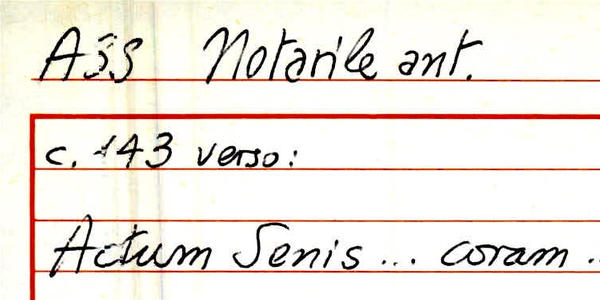 ASS Notarile ant.
c. 143 verso:
Actum Senis ... coram ..